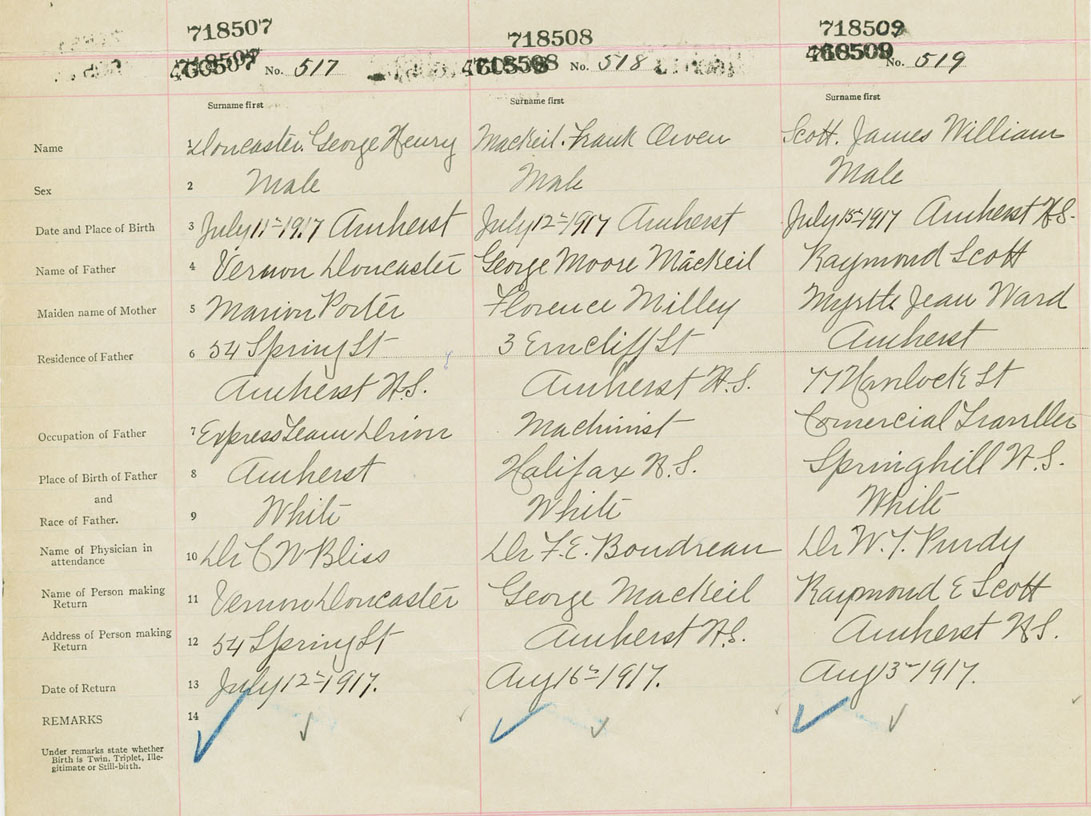 718507 718508 718509
718507 No. 517 718508 No. 518 468509 No. 519
Surname first Surname first Surname first
Name 1 Doncaster. George Henry Mackeil. Frank Owen Scott. James William
Sex 2 Male Male Male
Date and Place of Birth 3 July 11-1917 Amherst July 12-1917 Amherst July 15-1917 Amherst N.S.
Name of Father 4 Vernon Doncaster George Moore Mackeil Raymond Scott
Maiden name of Mother 5 Marion Porter Florence Milley Myrtle Jean Ward
Residence of Father 6 54 Spring St 3 Erncliff St Amherst
Amherst N.S. Amherst N.S. 77 Havlock St
Occupation of Father 7 Express Team Driver Machinist Comercial Traveller
Place of Birth of Father 8 Amherst Halifax N.S. Springhill N.S.
and
Race of Father. 9 White White White
Name of Physician in
attendance 10 Dr C W Bliss Dr F. E. Boudreau Dr W. T. Purdy
Name of Person making
Return 11 Vernon Doncaster George Mackeil Raymond E Scott
Address of Person making
Return 12 54 Spring St Amherst N.S. Amherst N.S.
Date of Return 13 July 12-1917. Aug 16-1917. Aug 13-1917.
REMARKS 14
Under remarks state whether
Birth is Twin, Triplet, Ille-
gitimate or Still-birth.